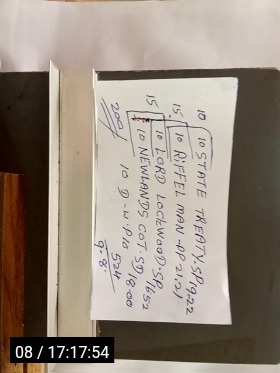 10 10 STATE TREATY. SP 19.22
15. 10 RIFFEL MAN - AP. 21.21
15 10 LORD LOCKWOOD. SP 16.52
10 NEWLANDS COT. SD 18.00
200/ 10 D-W. P10 524
9.8.
08 / 17:17:54